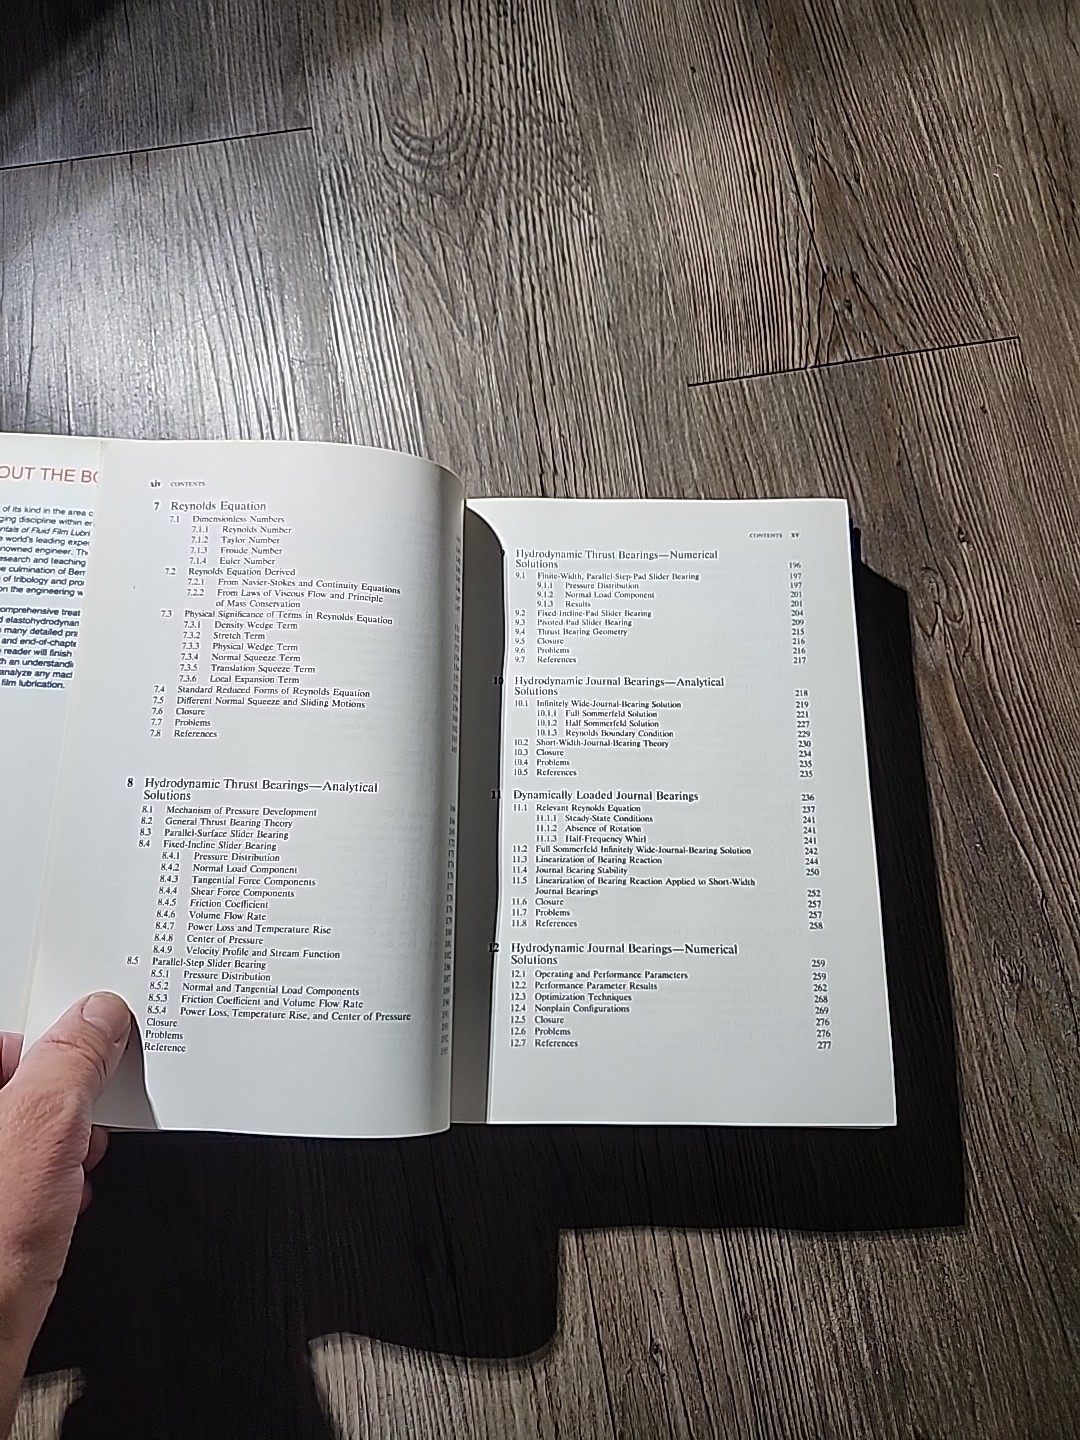 OUT THE BO
of its kind in the area o
ging discipline within en
ntals of Fluid Film Lubri
world's leading expe
nowned engineer. Th
esearch and teaching
e culmination of Ben
of tribology and pro
on the engineering w
omprehensive treat
d elastohydrodynan
many detailed pra
and end-of-chapte
reader will finish
h an understandi
analyze any mach
film lubrication.
xiv CONTENTS
7 Reynolds Equation
7.1 Dimensionless Numbers
7.1.1 Reynolds Number
7.1.2 Taylor Number
7.1.3 Froude Number
7.1.4 Euler Number
7.2 Reynolds Equation Derived
7.2.1 From Navier-Stokes and Continuity Equations
7.2.2 From Laws of Viscous Flow and Principle
of Mass Conservation
7.3 Physical Significance of Terms in Reynolds Equation
7.3.1 Density Wedge Term
7.3.2 Stretch Term
7.3.3 Physical Wedge Term
7.3.4 Normal Squeeze Term
7.3.5 Translation Squeeze Term
7.3.6 Local Expansion Term
7.4 Standard Reduced Forms of Reynolds Equation
7.5 Different Normal Squeeze and Sliding Motions
7.6 Closure
7.7 Problems
7.8 References
8 Hydrodynamic Thrust Bearings—Analytical
Solutions
8.1 Mechanism of Pressure Development
8.2 General Thrust Bearing Theory
8.3 Parallel-Surface Slider Bearing
8.4 Fixed-Incline Slider Bearing
8.4.1 Pressure Distribution
8.4.2 Normal Load Component
8.4.3 Tangential Force Components
8.4.4 Shear Force Components
8.4.5 Friction Coefficient
8.4.6 Volume Flow Rate
8.4.7 Power Loss and Temperature Rise
8.4.8 Center of Pressure
8.4.9 Velocity Profile and Stream Function
8.5 Parallel-Step Slider Bearing
8.5.1 Pressure Distribution
8.5.2 Normal and Tangential Load Components
8.5.3 Friction Coefficient and Volume Flow Rate
8.5.4 Power Loss, Temperature Rise, and Center of Pressure
Closure
Problems
Reference
CONTENTS xv
9 Hydrodynamic Thrust Bearings—Numerical
Solutions 196
9.1 Finite-Width, Parallel-Step-Pad Slider Bearing 197
9.1.1 Pressure Distribution 197
9.1.2 Normal Load Component 201
9.1.3 Results 201
9.2 Fixed-Incline-Pad Slider Bearing 204
9.3 Pivoted-Pad Slider Bearing 209
9.4 Thrust Bearing Geometry 215
9.5 Closure 216
9.6 Problems 216
9.7 References 217
10 Hydrodynamic Journal Bearings—Analytical
Solutions 218
10.1 Infinitely Wide-Journal-Bearing Solution 219
10.1.1 Full Sommerfeld Solution 221
10.1.2 Half Sommerfeld Solution 227
10.1.3 Reynolds Boundary Condition 229
10.2 Short-Width-Journal-Bearing Theory 230
10.3 Closure 234
10.4 Problems 235
10.5 References 235
11 Dynamically Loaded Journal Bearings 236
11.1 Relevant Reynolds Equation 237
11.1.1 Steady-State Conditions 241
11.1.2 Absence of Rotation 241
11.1.3 Half-Frequency Whirl 241
11.2 Full Sommerfeld Infinitely Wide-Journal-Bearing Solution 242
11.3 Linearization of Bearing Reaction 244
11.4 Journal Bearing Stability 250
11.5 Linearization of Bearing Reaction Applied to Short-Width
Journal Bearings 252
11.6 Closure 257
11.7 Problems 257
11.8 References 258
12 Hydrodynamic Journal Bearings—Numerical
Solutions 259
12.1 Operating and Performance Parameters 259
12.2 Performance Parameter Results 262
12.3 Optimization Techniques 268
12.4 Nonplain Configurations 269
12.5 Closure 276
12.6 Problems 276
12.7 References 277